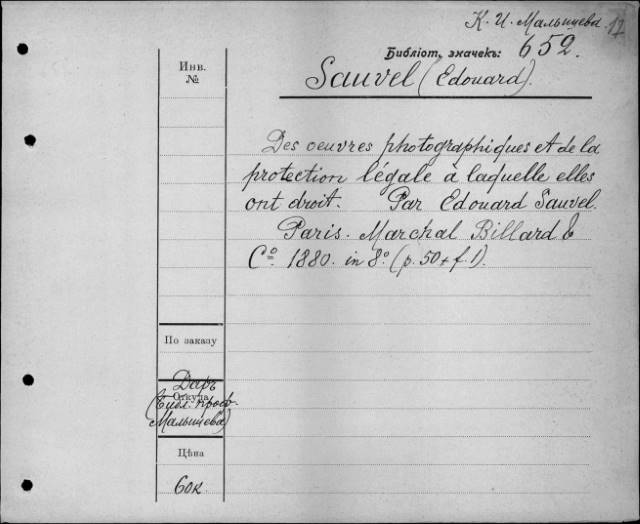 К. И. Малышева. 17
Библіот. значекъ: 652.
Инв.
№
Sauvel (Edouard).
Des oeuvres photographiques et de la
protection légale à laquelle elles
ont droit. Par Edouard Sauvel.
Paris. Marchal Billard &
Cº. 1880. in 8º. (p. 50 + f. 1).
По заказу
Даръ
Откуда
(Библ. проф.
Малышева)
Цѣна
60к